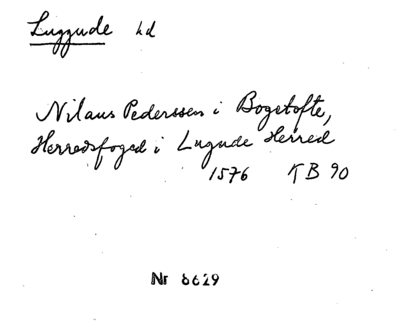 Luggude hd
Nilaus Pederssen i Bogetofte,
Herredsfoged i Lugude Herred
1576 KB 90
Nr 8629